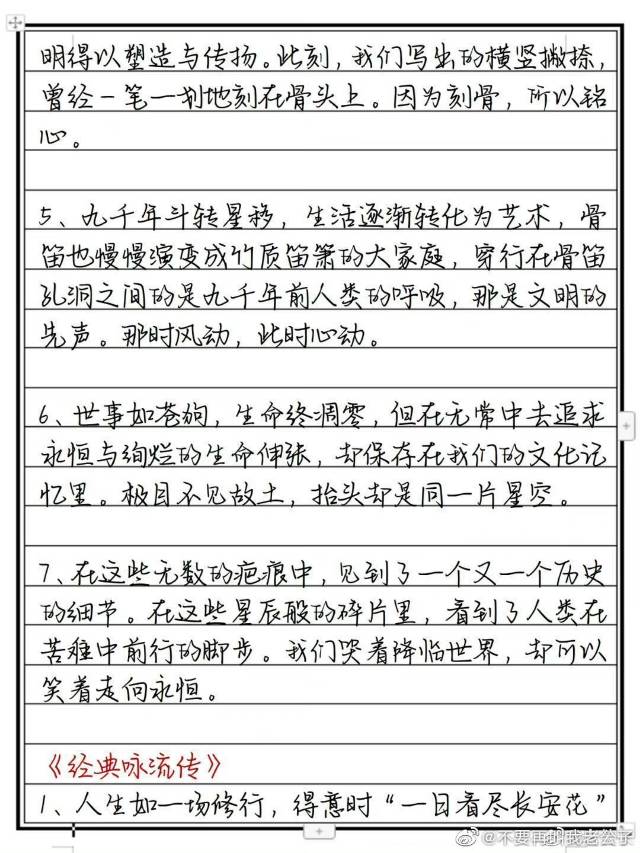 明得以塑造与传扬。此刻，我们写出的横竖撇捺，
曾经一笔一划地刻在骨头上。因为刻骨，所以铭
心。
5、九千年斗转星移，生活逐渐转化为艺术，骨
笛也慢慢演变成竹质笛箫的大家庭，穿行在骨笛
孔洞之间的是九千年前人类的呼吸，那是文明的
先声。那时风动，此时心动。
6、世事如苍狗，生命终凋零，但在无常中去追求
永恒与绚烂的生命伸张，却保存在我们的文化记
忆里。极目不见故土，抬头却是同一片星空。
7、在这些无数的疤痕中，见到了一个又一个历史
的细节。在这些星辰般的碎片里，看到了人类在
苦难中前行的脚步。我们哭着降临世界，却可以
笑着走向永恒。
《经典咏流传》
1、人生如一场修行，得意时“一日看尽长安花”